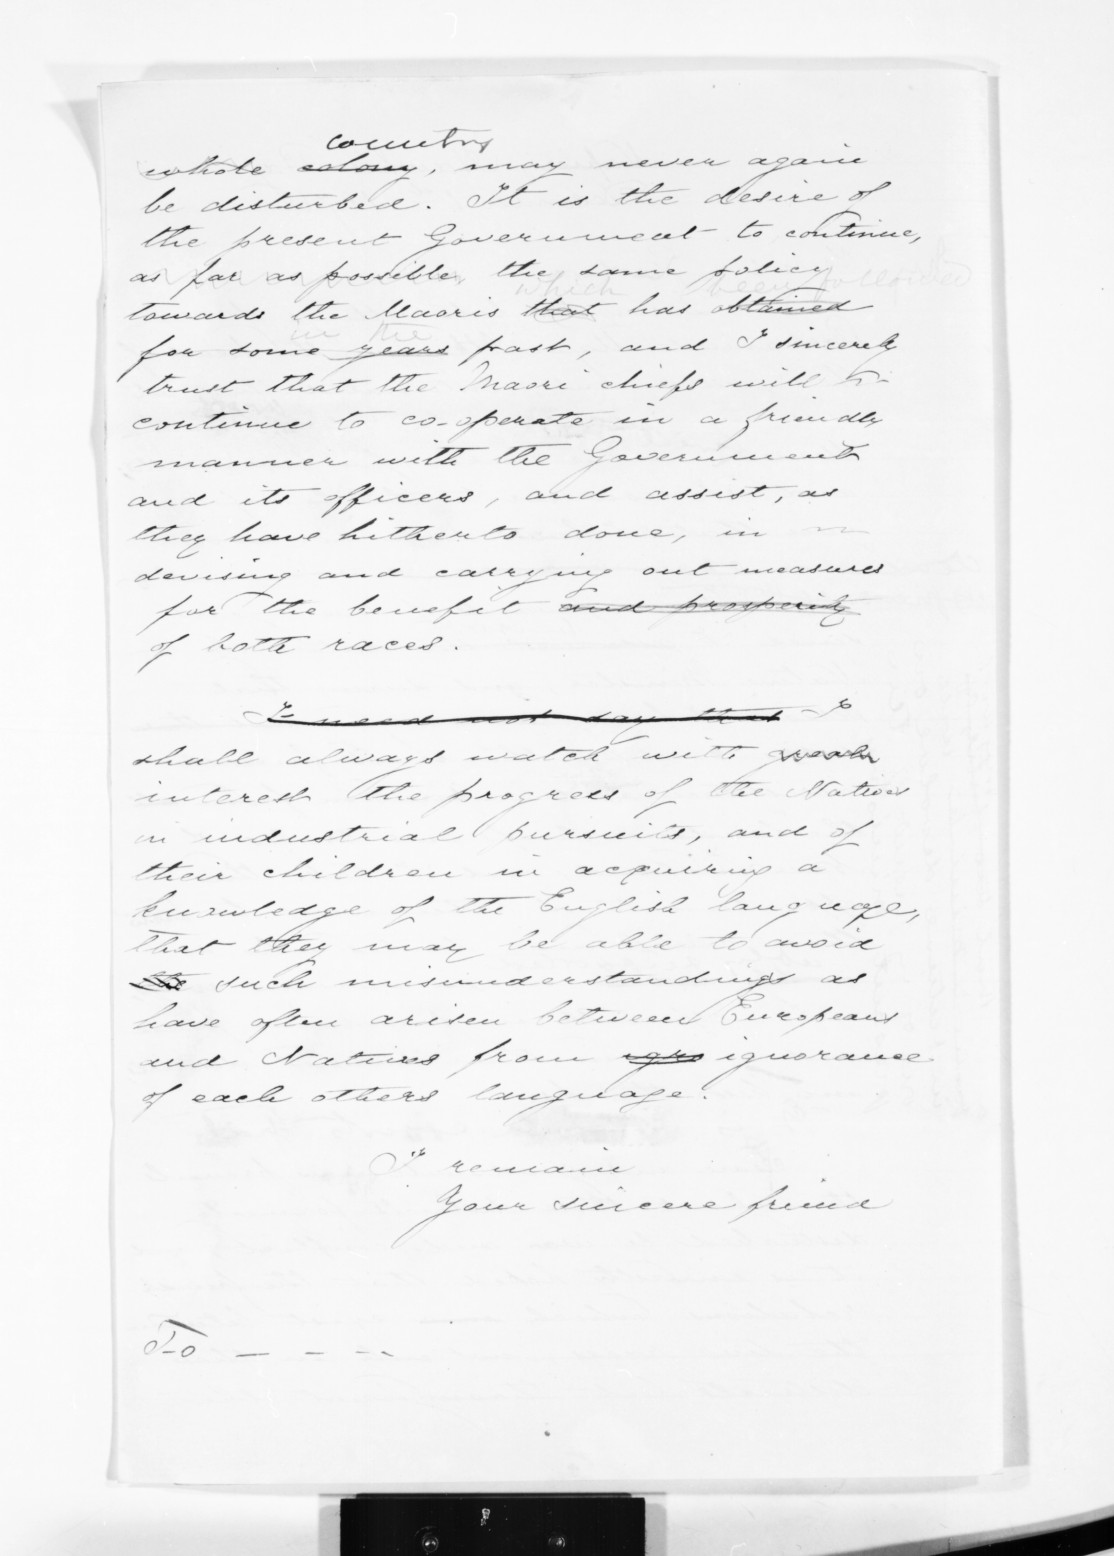 country
whole colony, may never again
be disturbed. It is the desire of
the present Government to continue,
as far as possible, the same policy
which been followed
towards the Maoris that has obtained
in the
for some years past, and I sincerely
trust that the Maori chiefs will
continue to co-operate in a friendly
manner with the Government
and its officers, and assist, as
they have hitherto done, in
devising and carrying out measures
for the benefit and prosperity
of both races.
I need not say that I
shall always watch with great
interest the progress of the Natives
in industrial pursuits, and of
their children in acquiring a
knowledge of the English language,
that they may be able to avoid
the such misunderstandings as
have often arisen between Europeans
and Natives from igno ignorance
of each others language.
I remain
Your sincere friend
To — — --